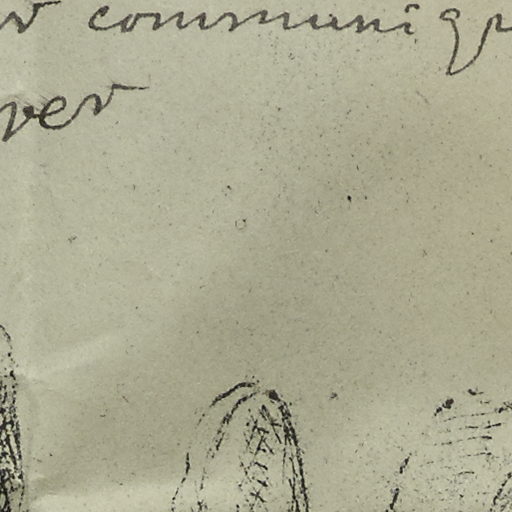 communiq
ver